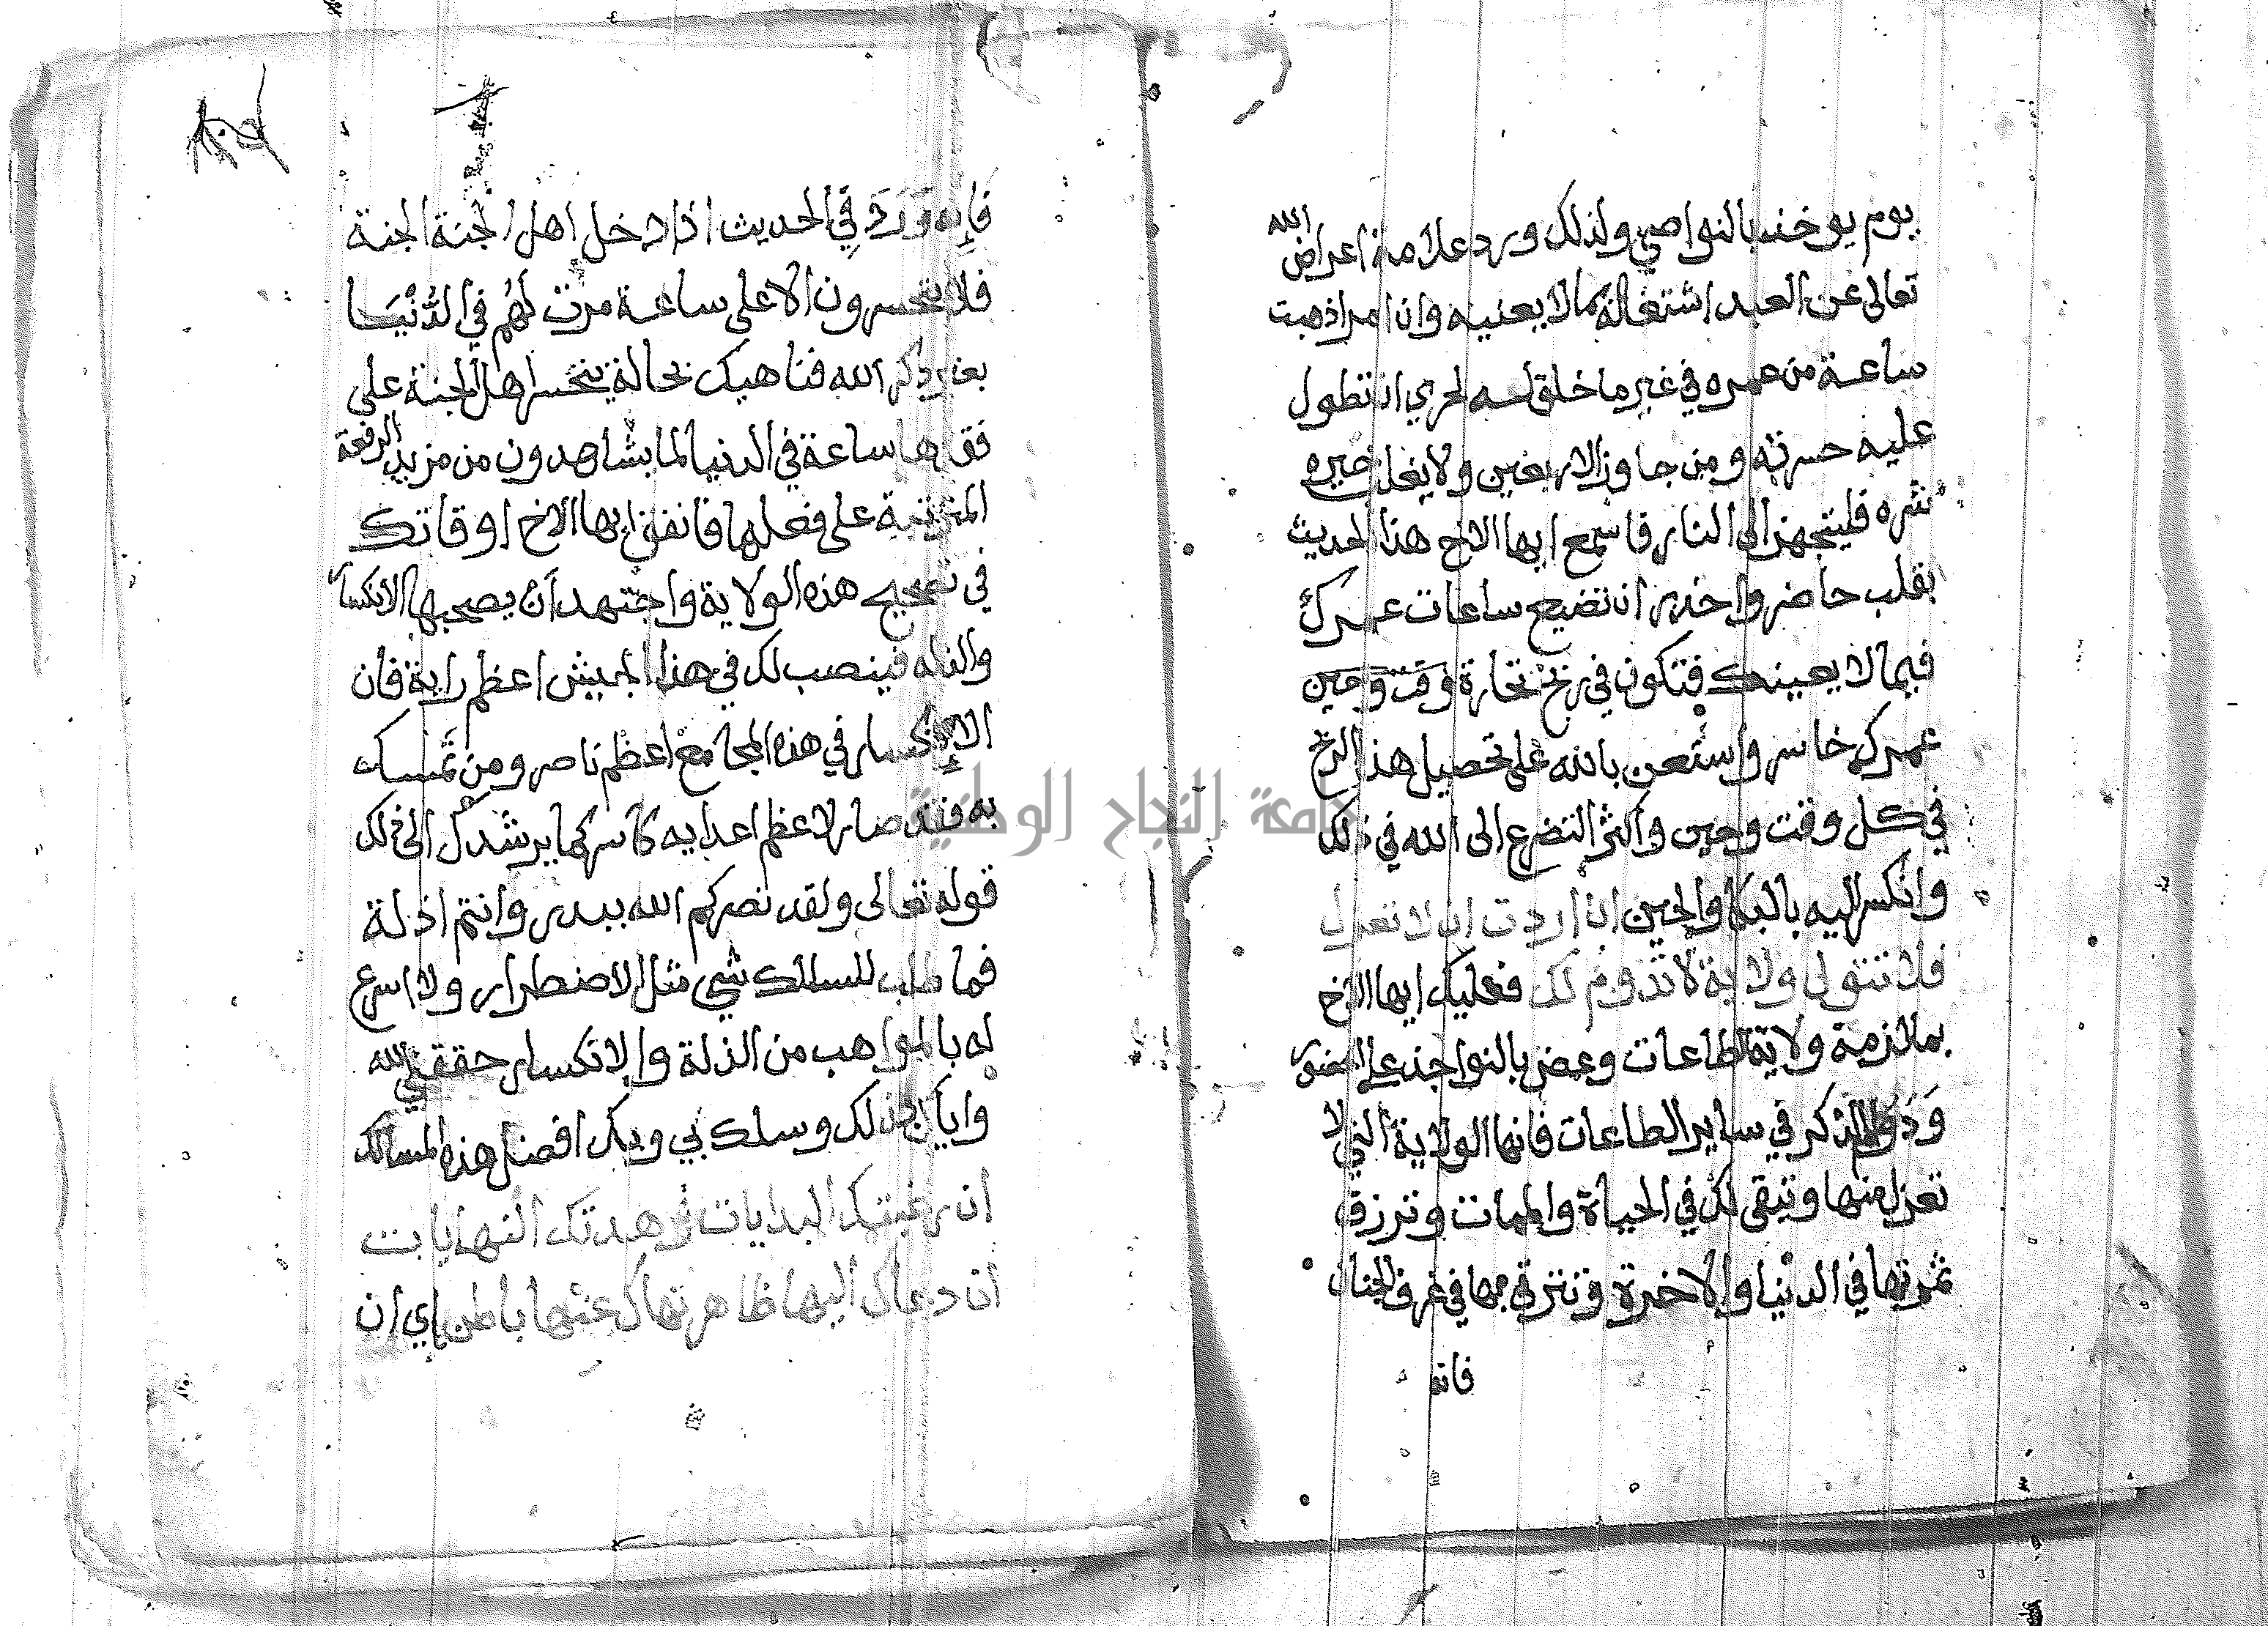 يوم يوخذ بالنواصي ولذلك ورد علامة اعراض الله
تعالى عن العبد اشتغاله بمالا يعنيه وان امرا ذهبت
ساعة من عمره في غير ما خلق له لحري ان تطول
عليه حسرته ومن جاوز الاربعين ولا يغلب خيره
شره فليتجهز الى النار فاسمع ايها الاخ هذا الحديث
بقلب حاضر واحذر ان تضيع ساعات عمرك
فيما لا يعينك فتكون في ربح تجارة وقت وحين
عمرك خاسر واستعن بالله على تحصيل هذا الربح
في كل وقت وحين واكثر التضرع الى الله في ذلك
وانكسر اليه بالبكا والحين ان اردت ان لا تعزل
فلا تتولى ولاية لا تدوم لك فعليك ايها الاخ
بملازمة ولاية الطاعات وعض بالنواجذ على الحضور
ودوام الذكر في ساير الطاعات فانها الولاية التي لا
تعزل منها وتبقى لك في الحياة والممات وترزق
ثمرتها في الدنيا والاخرة وتترقى بها في غرف الجنان
فانه
فانه ورد في الحديث اذا دخل اهل الجنة الجنة
فلا يتحسرون الا على ساعة مرت لهم في الدنيا
بغير ذكر الله فناهيك بحالة يتحسر اهل الجنة على
فقدها ساعة في الدنيا لما يشاهدون من مزيد الرفعة
المترتبة على فعلها فانفق ايها الاخ اوقاتك
في تصحيح هذه الولاية واجتهد ان يصحبها الانكسار
والذلة فينصب لك في هذا الجيش اعظم راية فان
الانكسار في هذه المجامع اعظم ناصر ومن تمسك
به فقد صار لاعظم اعدايه كاسر كما يرشدك الى ذلك
قوله تعالى ولقد نصركم الله ببدر وانتم اذلة
فما طلب للسالك شي مثل الاضطرار ولا اسرع
له بالمواهب من الذلة والانكسار حققني الله
واياك بذلك وسلك بي وبك افضل هذه المسالك
ان رغبتك البدايات زهدتك النهايات
ان دعاك اليها ظاهر نهاك عنها باطن اي ان
جامعة النجاح الوطنية